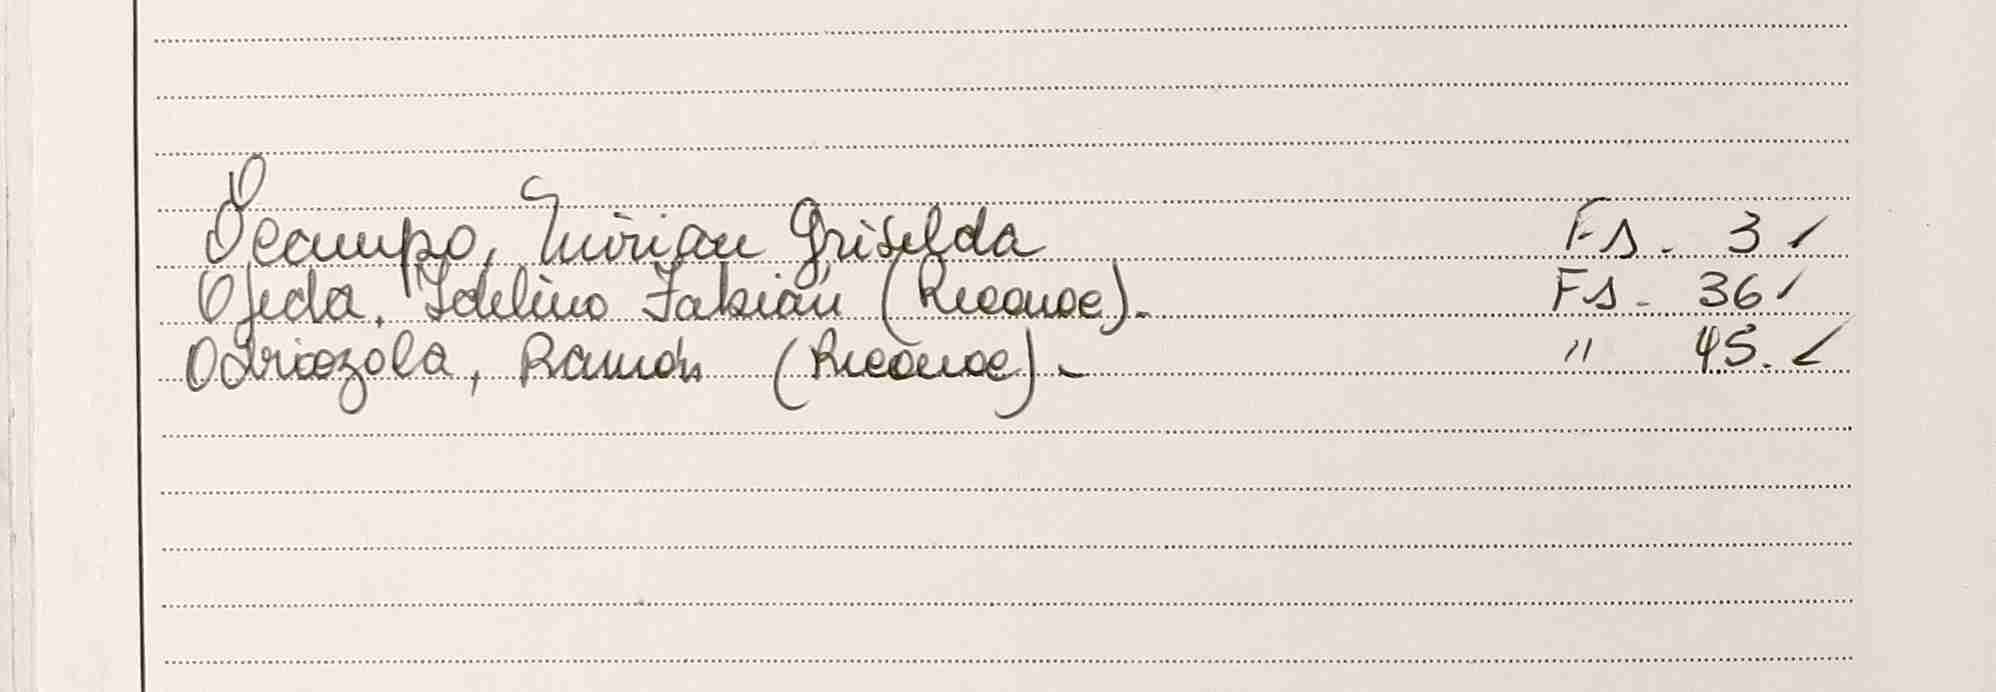 Ocampo, Mirian Griselda Fs. 3 ✓
Ojeda, Idelino Fabián (Reconoc). Fs. 36 ✓
Odriozola, Ramón (Reconoc). " 45. ✓